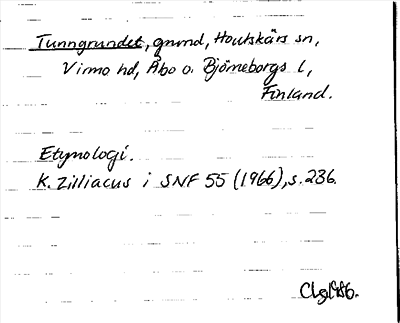 Tunngrundet, grund, Houtskärs sn,
Virmo hd, Åbo o. Björneborgs l,
Finland.
Etymologi.
K. Zilliacus i SNF 55 (1966), s. 236.